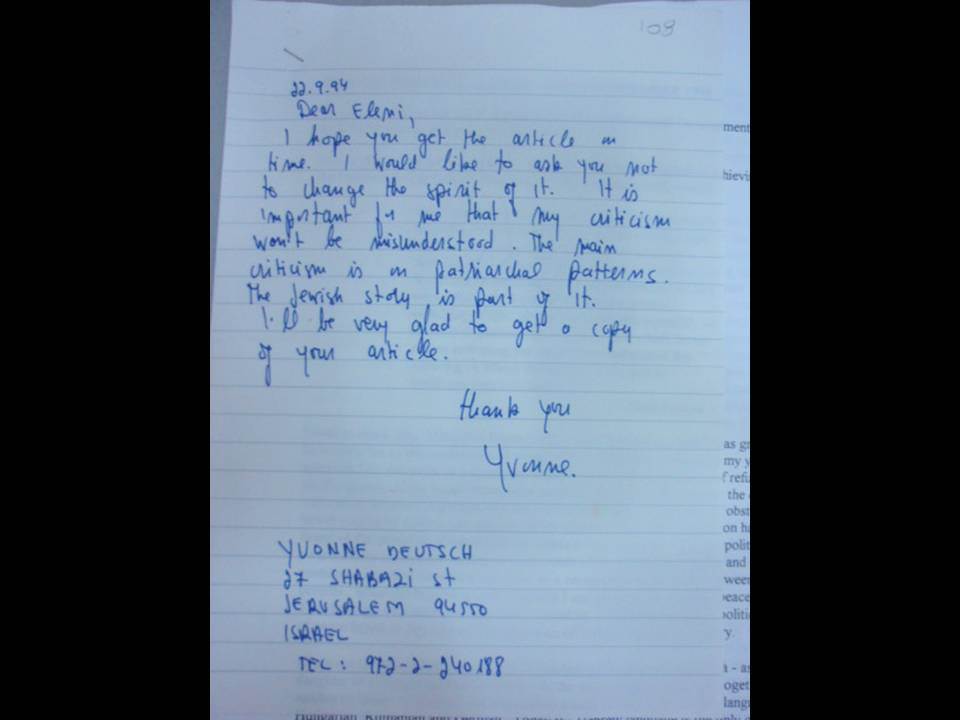 109
22.9.94
Dear Eleni,
I hope you get the article on
time. I would like to ask you not
to change the spirit of it. It is
important for me that my criticism
won't be misunderstood. The main
criticism is on patriarchal patterns.
The Jewish story is part of it.
I'll be very glad to get a copy
of your article.
thank you
Yvonne.
YVONNE DEUTSCH
27 SHABAZi st
JERUSALEM 94550
ISRAEL
TEL: 972-2-240188
ment
hievi
as gr
my y
f refu
the
obst
on ha
polit
and
ween
peace
politi
y.
- as
oget
lang